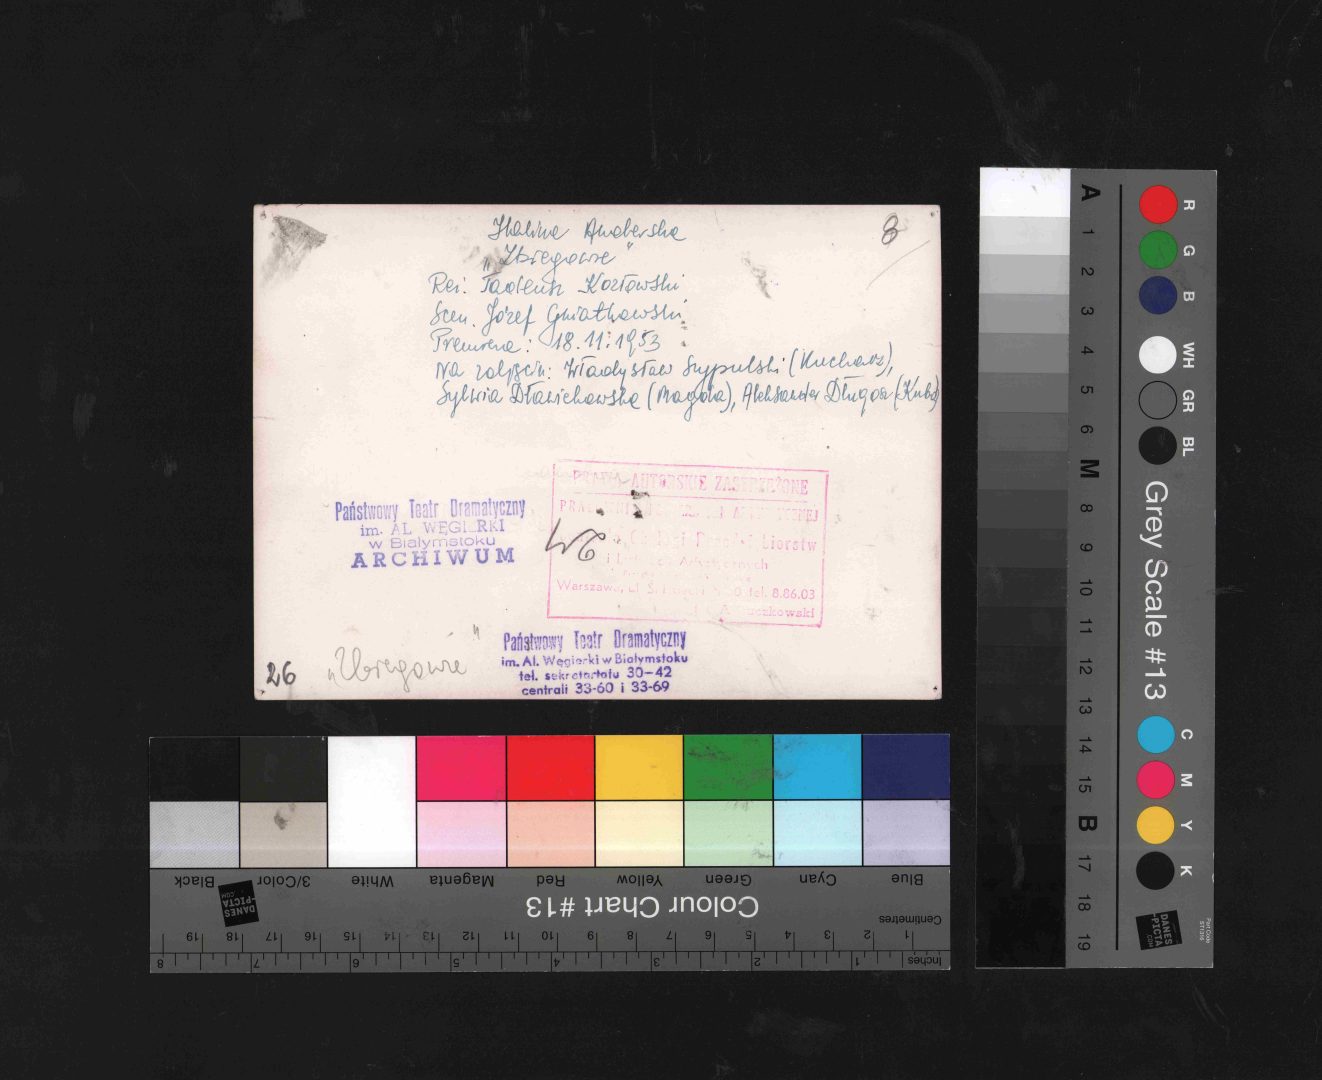 Halina Auderska
„Zbiegowie"
Reż. Tadeusz Kozłowski
Scen. Józef Gniatkowski
Premiera: 18.11.1953
Na zdjęciu: Władysław Szypulski (Kucharz),
Sylwia (Magda), Aleksander Długosz (Kuba)
8
Państwowy Teatr Dramatyczny
im. AL WĘGIERKI
w Białymstoku
ARCHIWUM
PRAWA AUTORSKIE ZASTRZEŻONE
24
i Artystycznych
Warszawa, ul. tel. 8.86.03
26
„Zbiegowie"
Państwowy Teatr Dramatyczny
im. Al. Węgierki w Białymstoku
tel. sekretariatu 30-42
centrali 33-60 i 33-69
Blue Cyan Green Yellow Red Magenta White 3/Color Black
Colour Chart #13
DANES
-PICTA
.COM
Centimetres
1 2 3 4 5 6 7 8 9 10 11 12 13 14 15 16 17 18 19
Inches 1 2 3 4 5 6 7 8
A 1 2 3 4 5 6 M 8 9 10 11 12 13 14 15 B 17 18 19
R G B WH GR BL
Grey Scale #13
C M Y K
DANES
-PICTA
.COM
Part Code